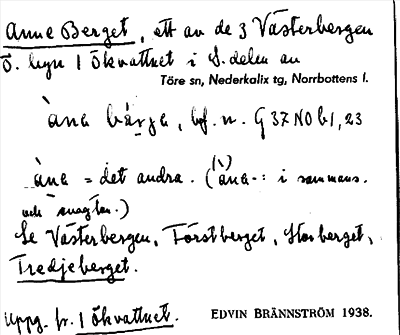 Anne Berget, ett av de 3 Västerbergen
Ö. byn 1 Ökvattnet i S. delen av
Töre sn, Nederkalix tg, Norrbottens l.
àna bärga, bf. n. G 37 NO b1, 23
àna = det andra. (àna-: i sammans.
och)
Se Västerbergen, Förstberget, Storberget,
Tredjeberget.
Uppg. fr. 1 Ökvattnet. EDVIN BRÄNNSTRÖM 1938.